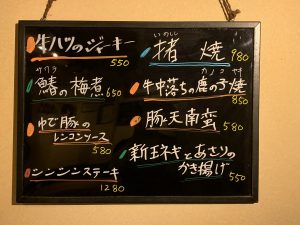 牛ハツのジャーキー
550
サワラ
鰆の梅煮 650
ゆで豚の
レンコンソース
580
シンシンステーキ
1280
いのしし
猪 焼 980
カノコ
牛中落ちの鹿の子焼
850
豚天南蛮 580
新玉ネギとあさりの
かき揚げ 550